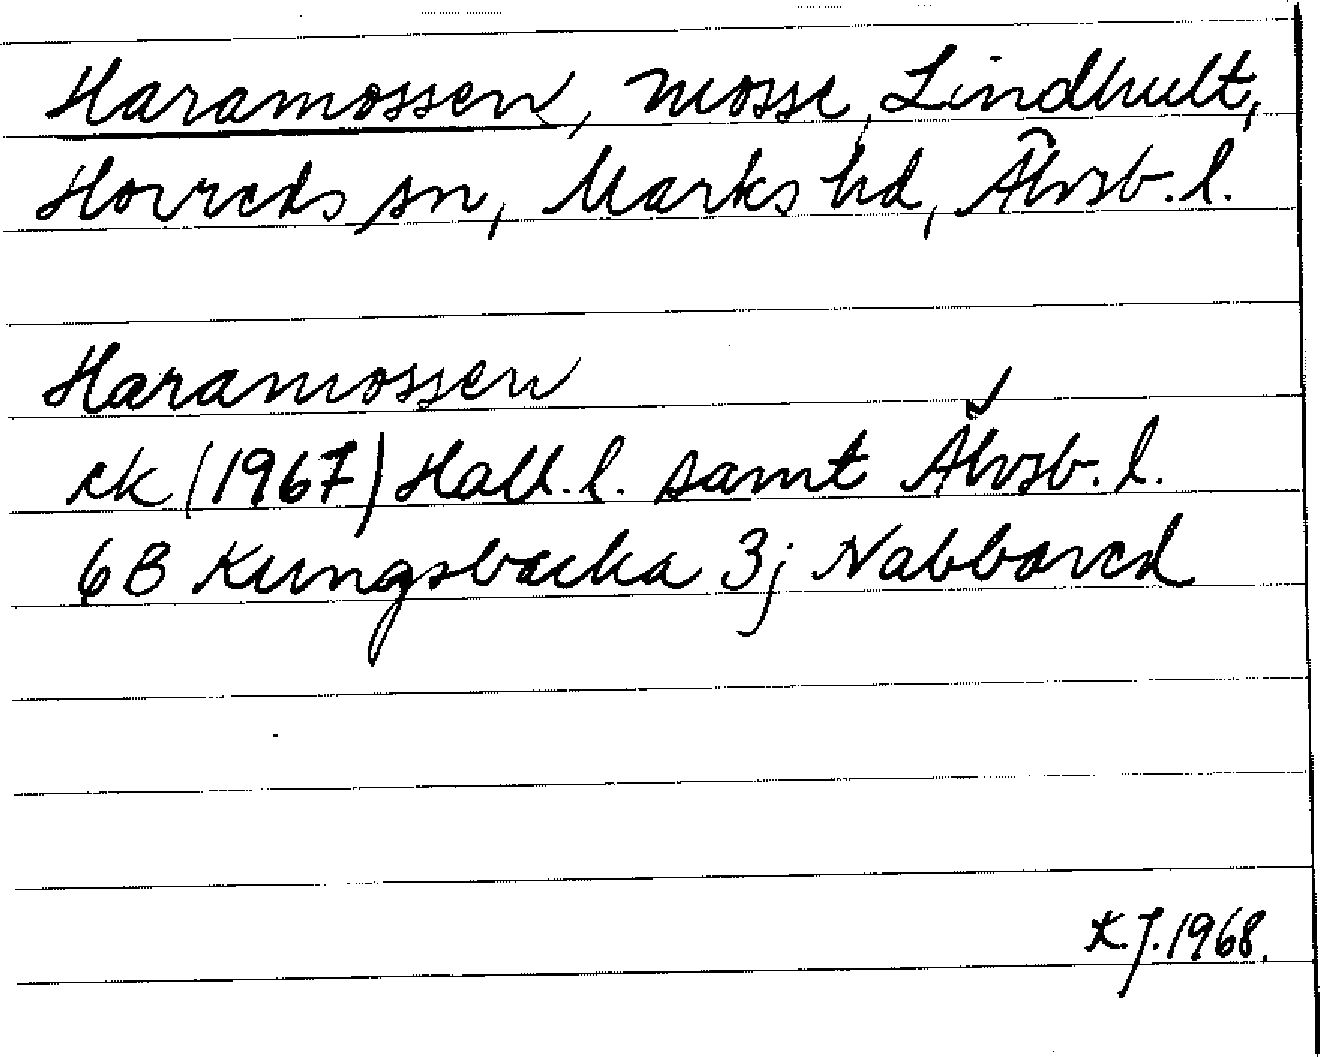 Haramossen, mosse, Lindhult,
Horreds sn, Marks hd, Älvsb. l.
Haramossen
ek (1967) Hall. l. samt Älvsb. l.
6B Kungsbacka 3j Nabbared
K.J. 1968.